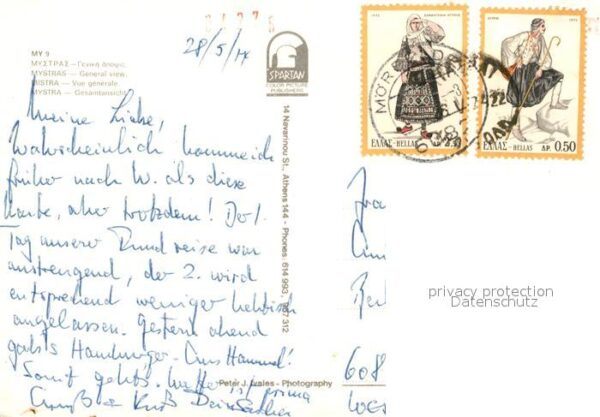 28/5/74
MY 9
ΜΥΣΤΡΑΣ — Γενική άποψις
MYSTRAS — General view
MISTRA — Vue générale
MISTRA — Gesamtansicht
SPARTAN
COLOR PICTURE
PUBLISHERS
14 Navarinou St., Athens 144 - Phones: 614 993,
Peter J. - Photography
Meine Liebe!
Wahrscheinlich komme ich
früher nach W. als diese
Karte, aber trotzdem! Der 1.
Tag unserer Rundreise war
anstrengend, der 2. wird
entsprechend weniger hektisch
angelassen. Gestern abend
gab's Hamburger. Aus Hammel!
Sonst geht's. Wetter ist prima
Gruß & Kuß Dein
1972
ΕΛΛΑΣ-HELLAS ΔΡ.
1972
ΕΛΛΑΣ-HELLAS ΔΡ. 0.50
608
privacy protection
Datenschutz